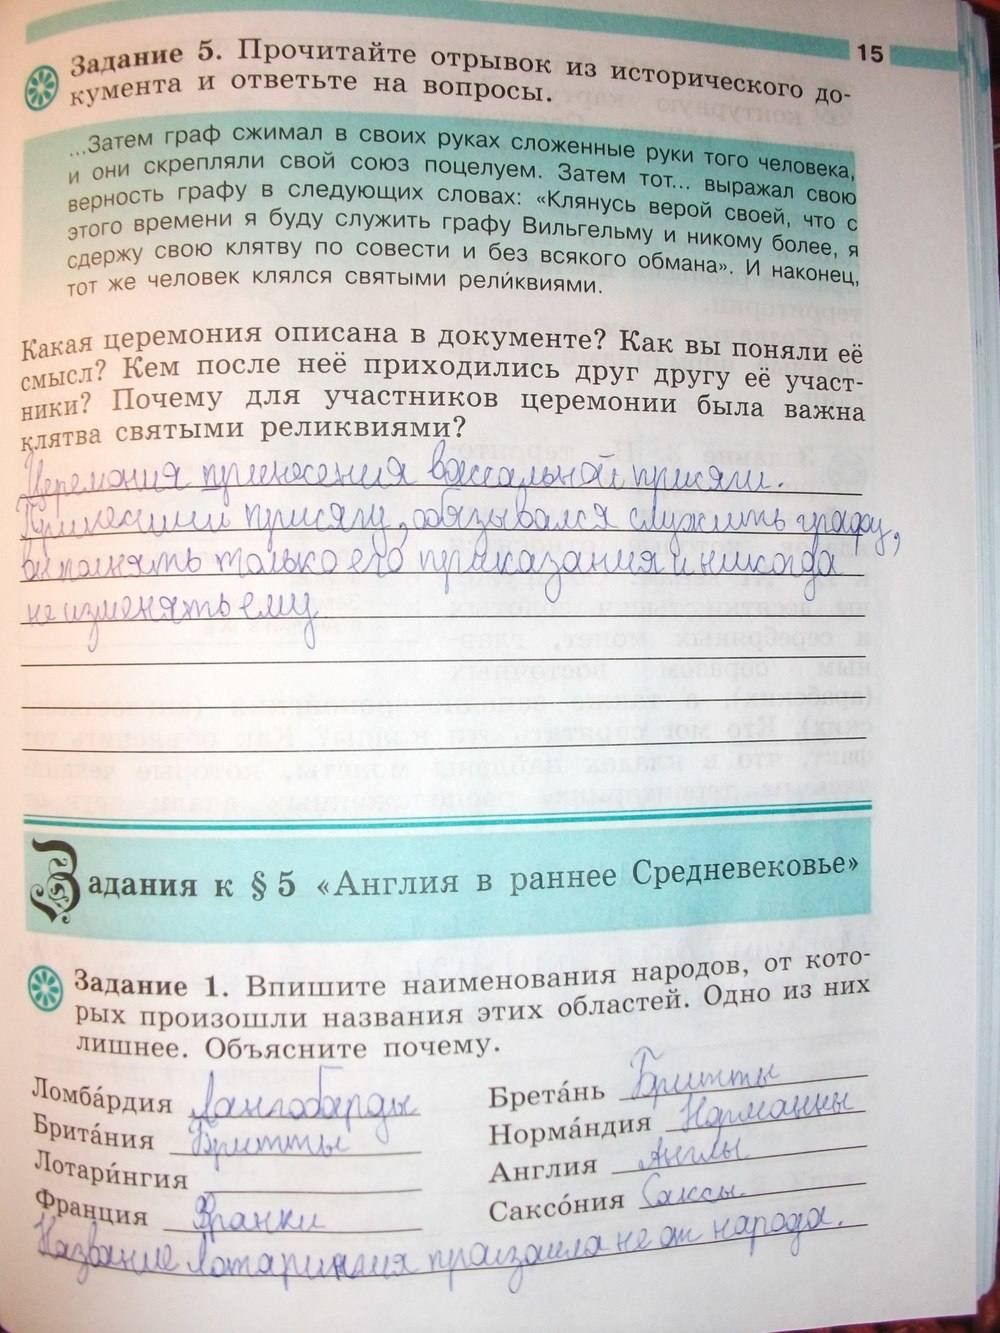 15
Задание 5. Прочитайте отрывок из исторического до-
кумента и ответьте на вопросы.
...Затем граф сжимал в своих руках сложенные руки того человека,
и они скрепляли свой союз поцелуем. Затем тот... выражал свою
верность графу в следующих словах: «Клянусь верой своей, что с
этого времени я буду служить графу Вильгельму и никому более, я
сдержу свою клятву по совести и без всякого обмана». И наконец,
тот же человек клялся святыми рели́квиями.
Какая церемония описана в документе? Как вы поняли её
смысл? Кем после неё приходились друг другу её участ-
ники? Почему для участников церемонии была важна
клятва святыми реликвиями?
Церемония принесения вассальной присяги.
Принесший присягу, обязывался служить графу,
выполнять только его приказания и никогда
не изменять ему
Задания к § 5 «Англия в раннее Средневековье»
Задание 1. Впишите наименования народов, от кото-
рых произошли названия этих областей. Одно из них
лишнее. Объясните почему.
Ломба́рдия Лангобарды
Брита́ния Бритты
Лотари́нгия
Франция Франки
Брета́нь Бритты
Норма́ндия Норманны
Англия Англы
Саксо́ния Саксы
Название Лотарингия произошла не от народа.